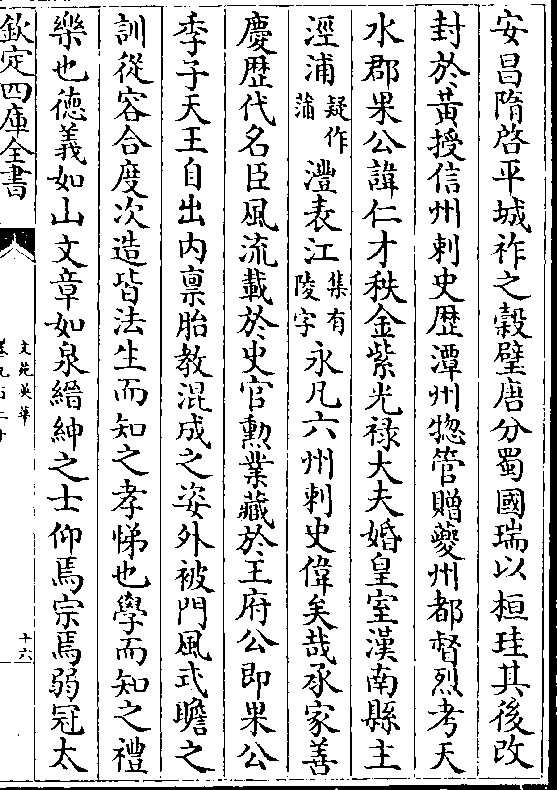 安昌隋啓平城祚之穀璧唐分蜀國瑞以桓珪其後改
封於黄授信州刺史歴潭州惣管贈夔州都督烈考天
水郡果公諱仁才秩金紫光禄大夫婚皇室漢南縣主
涇浦疑作蒲灃表江集有陵字永凡六州刺史偉矣哉承家善
慶歴代名臣風流載於史官勲業藏於王府公即果公
季子天王自出内禀胎教混成之姿外被門風式瞻之
訓從容合度次造皆法生而知之孝悌也學而知之禮
樂也徳義如山文章如泉縉紳之士仰焉宗焉弱冠太
欽定四庫全書
文苑英華
十六